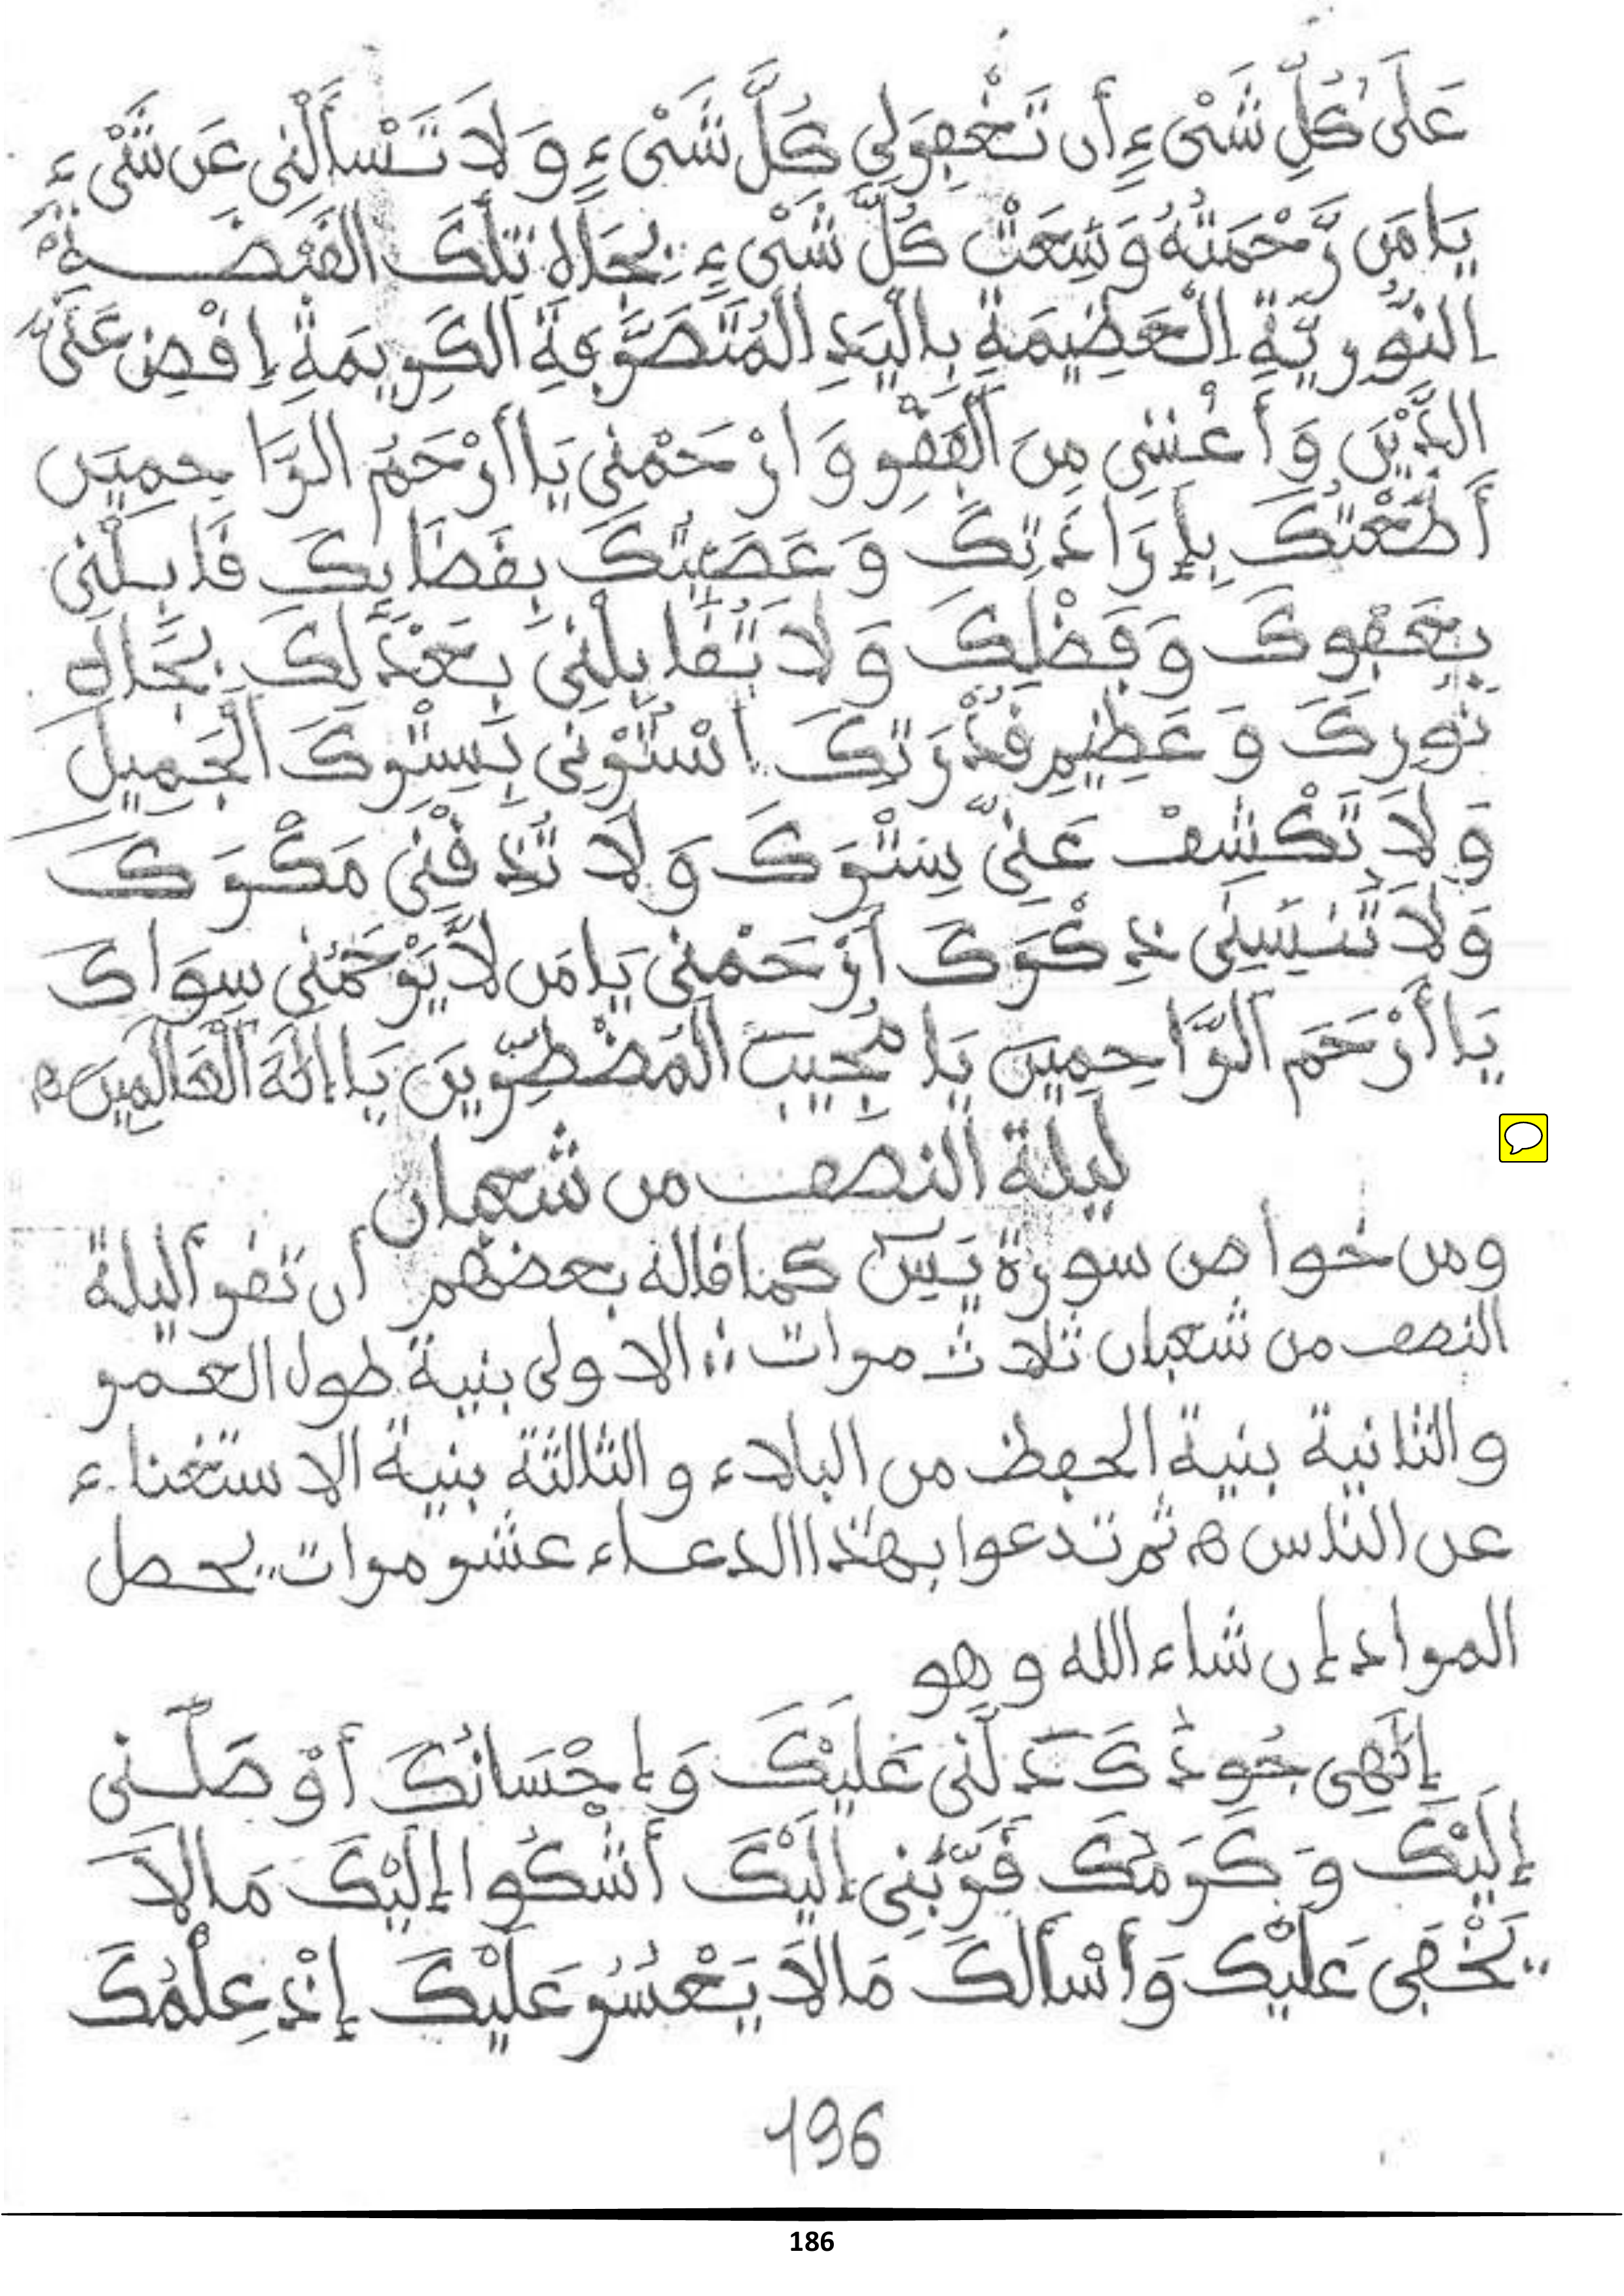 عَلَى كُلِّ شَىْءٍ أَن تَغْفِرَلِي كُلَّ شَىْءٍ وَلَا تَسْأَلْنِي عَن شَىْءٍ
يَا مَن رَّحْمَتُهُ وَسِعَتْ كُلَّ شَىْءٍ بِجَاهِ تِلْكَ القَبْضَةِ
النُّورِيَّةِ الْعَظِيمَةِ بِالْيَدِ الْمُتَصَرِّفَةِ الكَرِيمَةِ اِقْضِ عَنِّى
الدَّيْنَ وَأَغْنِنِى مِنَ الْفَقْرِ وَارْحَمْنِى يَا أَرْحَمَ الرَّاحِمِينَ
أَطَعْتُكَ بِإِرَادَتِكَ وَعَصَيْتُكَ بِقَضَائِكَ قَابِلْنِى
بِعَفْوِكَ وَفَضْلِكَ وَلَا تُقَابِلْنِى بِعَدْلِكَ بِجَاهِ
نُورِكَ وَعَظِيمِ قُدْرَتِكَ اسْتُرْنِى بِسِتْرِكَ الْجَمِيلِ
وَلَا تَكْشِفْ عَنِّى سِتْرَكَ وَلَا تُذِقْنِى مَكْرَكَ
وَلَا تُنْسِنِى ذِكْرَكَ اَرْحَمْنِى يَا مَن لَّا يَرْحَمُنِى سِوَاكَ
يَا أَرْحَمَ الرَّاحِمِينَ يَا مُجِيبَ الْمُضْطَرِّينَ يَا إِلَهَ الْعَالَمِينَ ه
ليلة النصف من شعبان
ومن خواص سورة يَسٓ كما قاله بعضهم أن تقرأ ليلة
النصف من شعبان ثلاث مرات :: الاولى بنية طول العمر
والثانية بنية الحفظ من البلاء والثالثة بنية الاستغناء
عن الناس ه ثم تدعوا بهذا الدعاء عشر مرات يحصل
المراد إن شاء الله وهو
إِلَهِى جُودُكَ دَلَّنِى عَلَيْكَ وَإِحْسَانُكَ أَوْصَلَنِى
إِلَيْكَ وَكَرَمُكَ قَرَّبَنِى إِلَيْكَ أَشْكُوا إِلَيْكَ مَالَا
يَخْفَى عَلَيْكَ وَأَسْأَلُكَ مَالَا يَعْسُرُ عَلَيْكَ إِذْ عِلْمُكَ
196
186